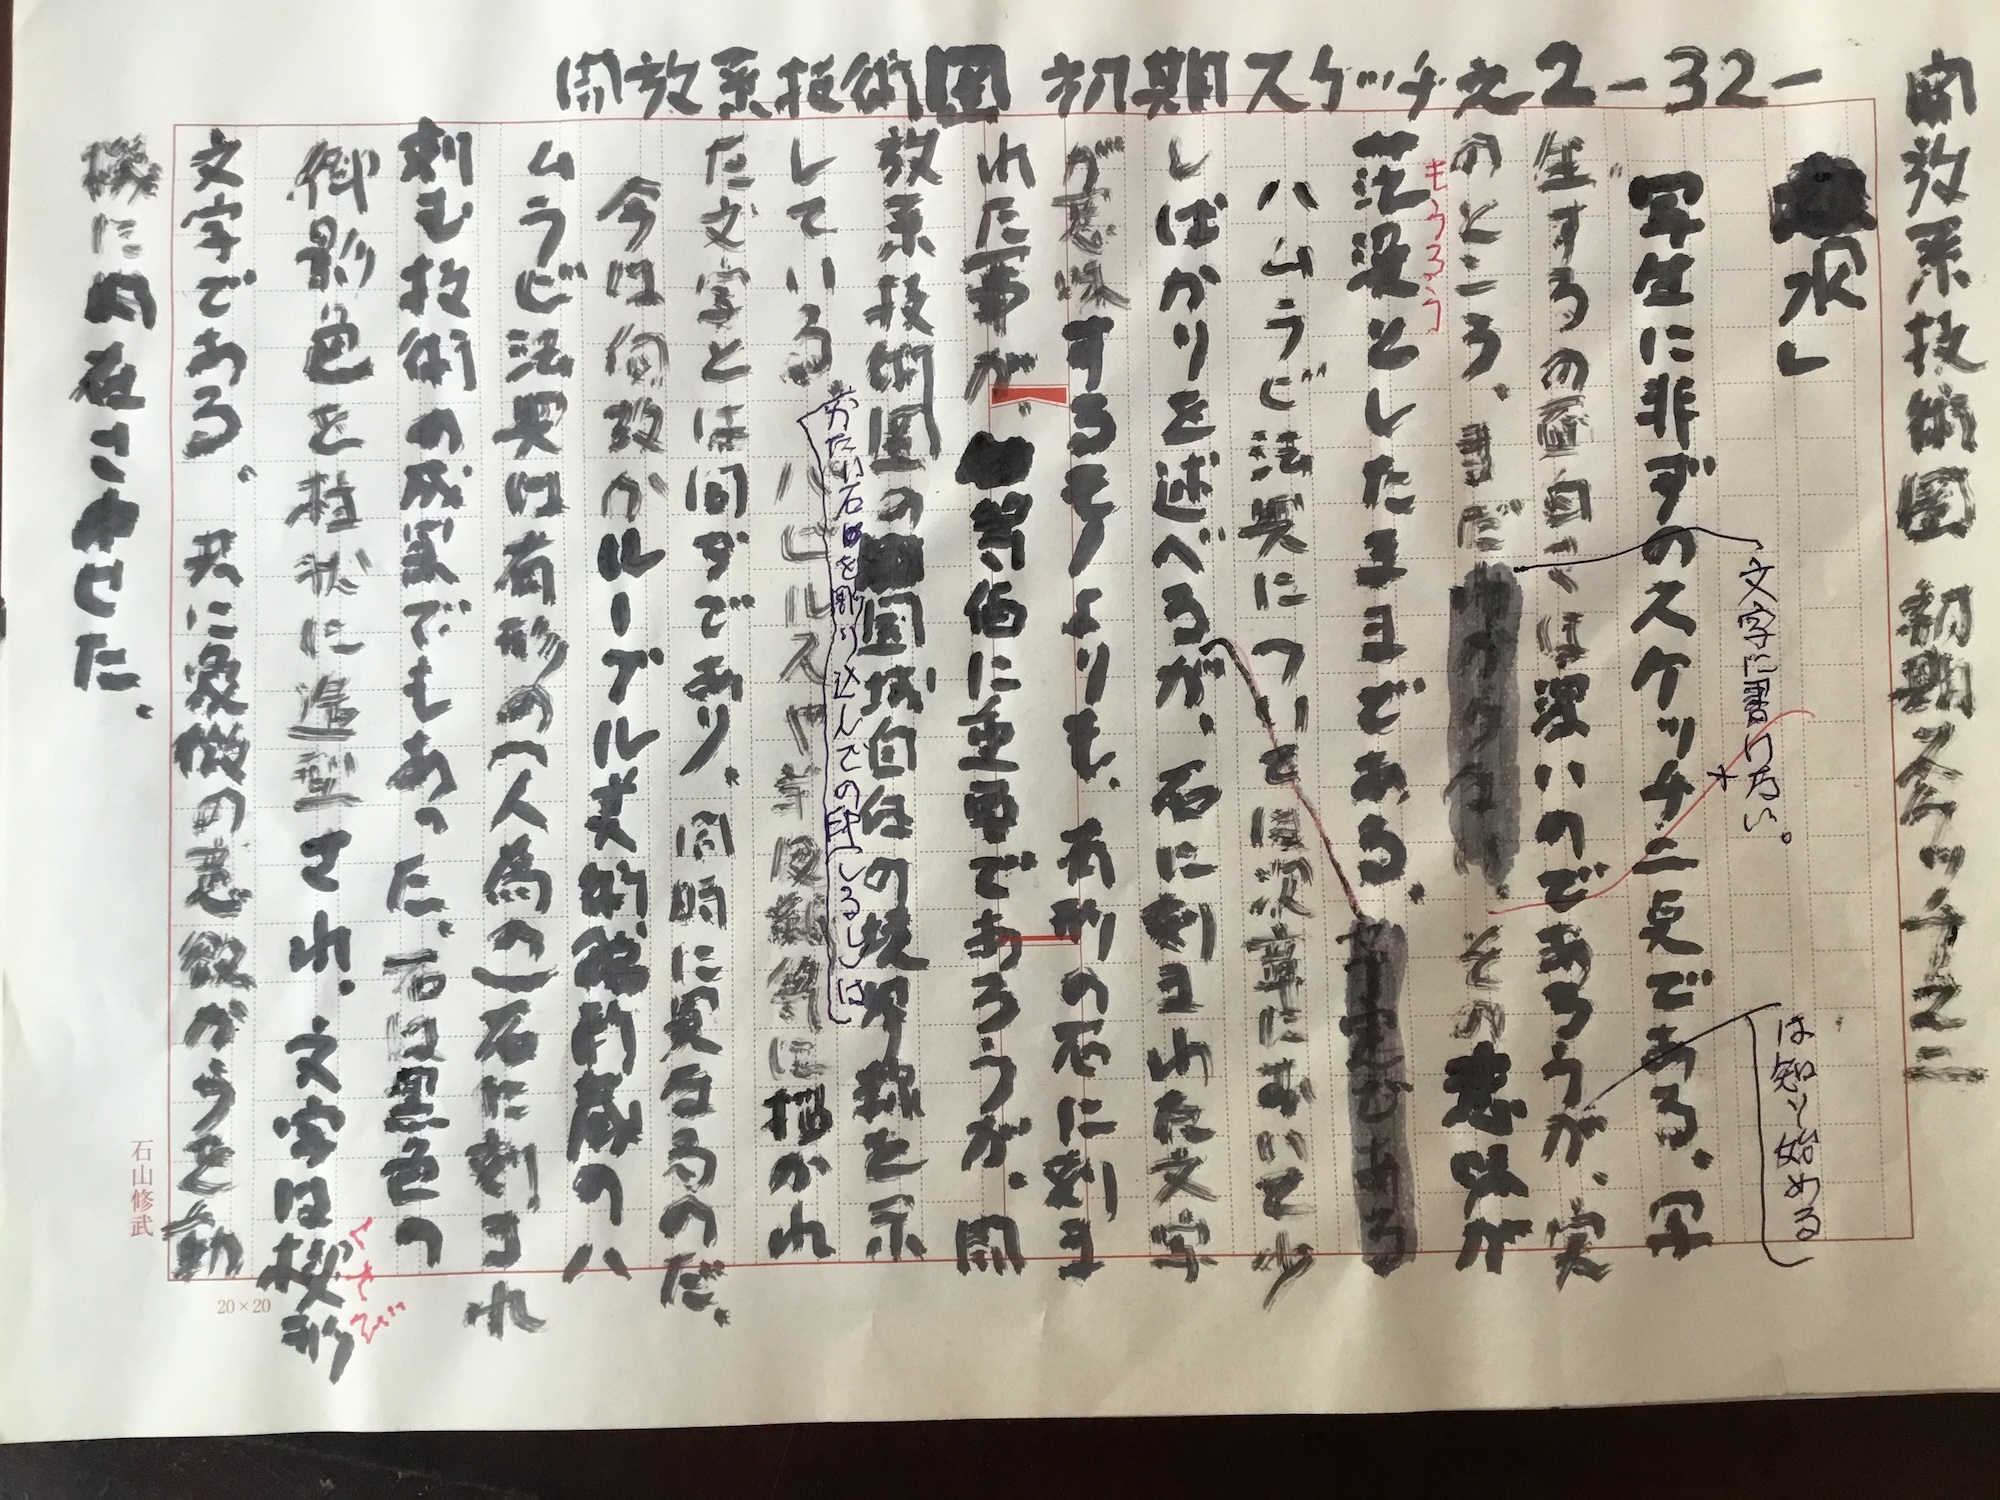 開放系技術圏 初期スケッチ之2-32-
開放系技術圏 初期スケッチ之二
水」
写生に非ずのスケッチ二点である。写
生するの面白くは深いのであろうが、実
は知り始める
のところ、まだ
文字に書けない。
その意味が
茫漠としたままである。
もうろう
ハムラビ法典については次章において少
しばかりを述べるが、石に刻まれた文字
が意味するモノよりも、有形の石に刻ま
れた事が、等価に重要であろうが、開
放系技術圏の圏域自体の境界線を示
している。
おたい石田を彫り込んでの印しるしは
パピルスや羊皮紙等に描かれ
た文字とは同ずであり、同時に異なるのだ。
今は何故かルーブル美術館所蔵のハ
ムラビ法典は有形の(人為の)石に刻まれ
刻む技術の成果でもあった。石は黒色の
御影色を柱状に造型され、文字は楔形
くさび
文字である。共に象徴の意欲からを動
機に内在こめじた。
石山修武
20×20